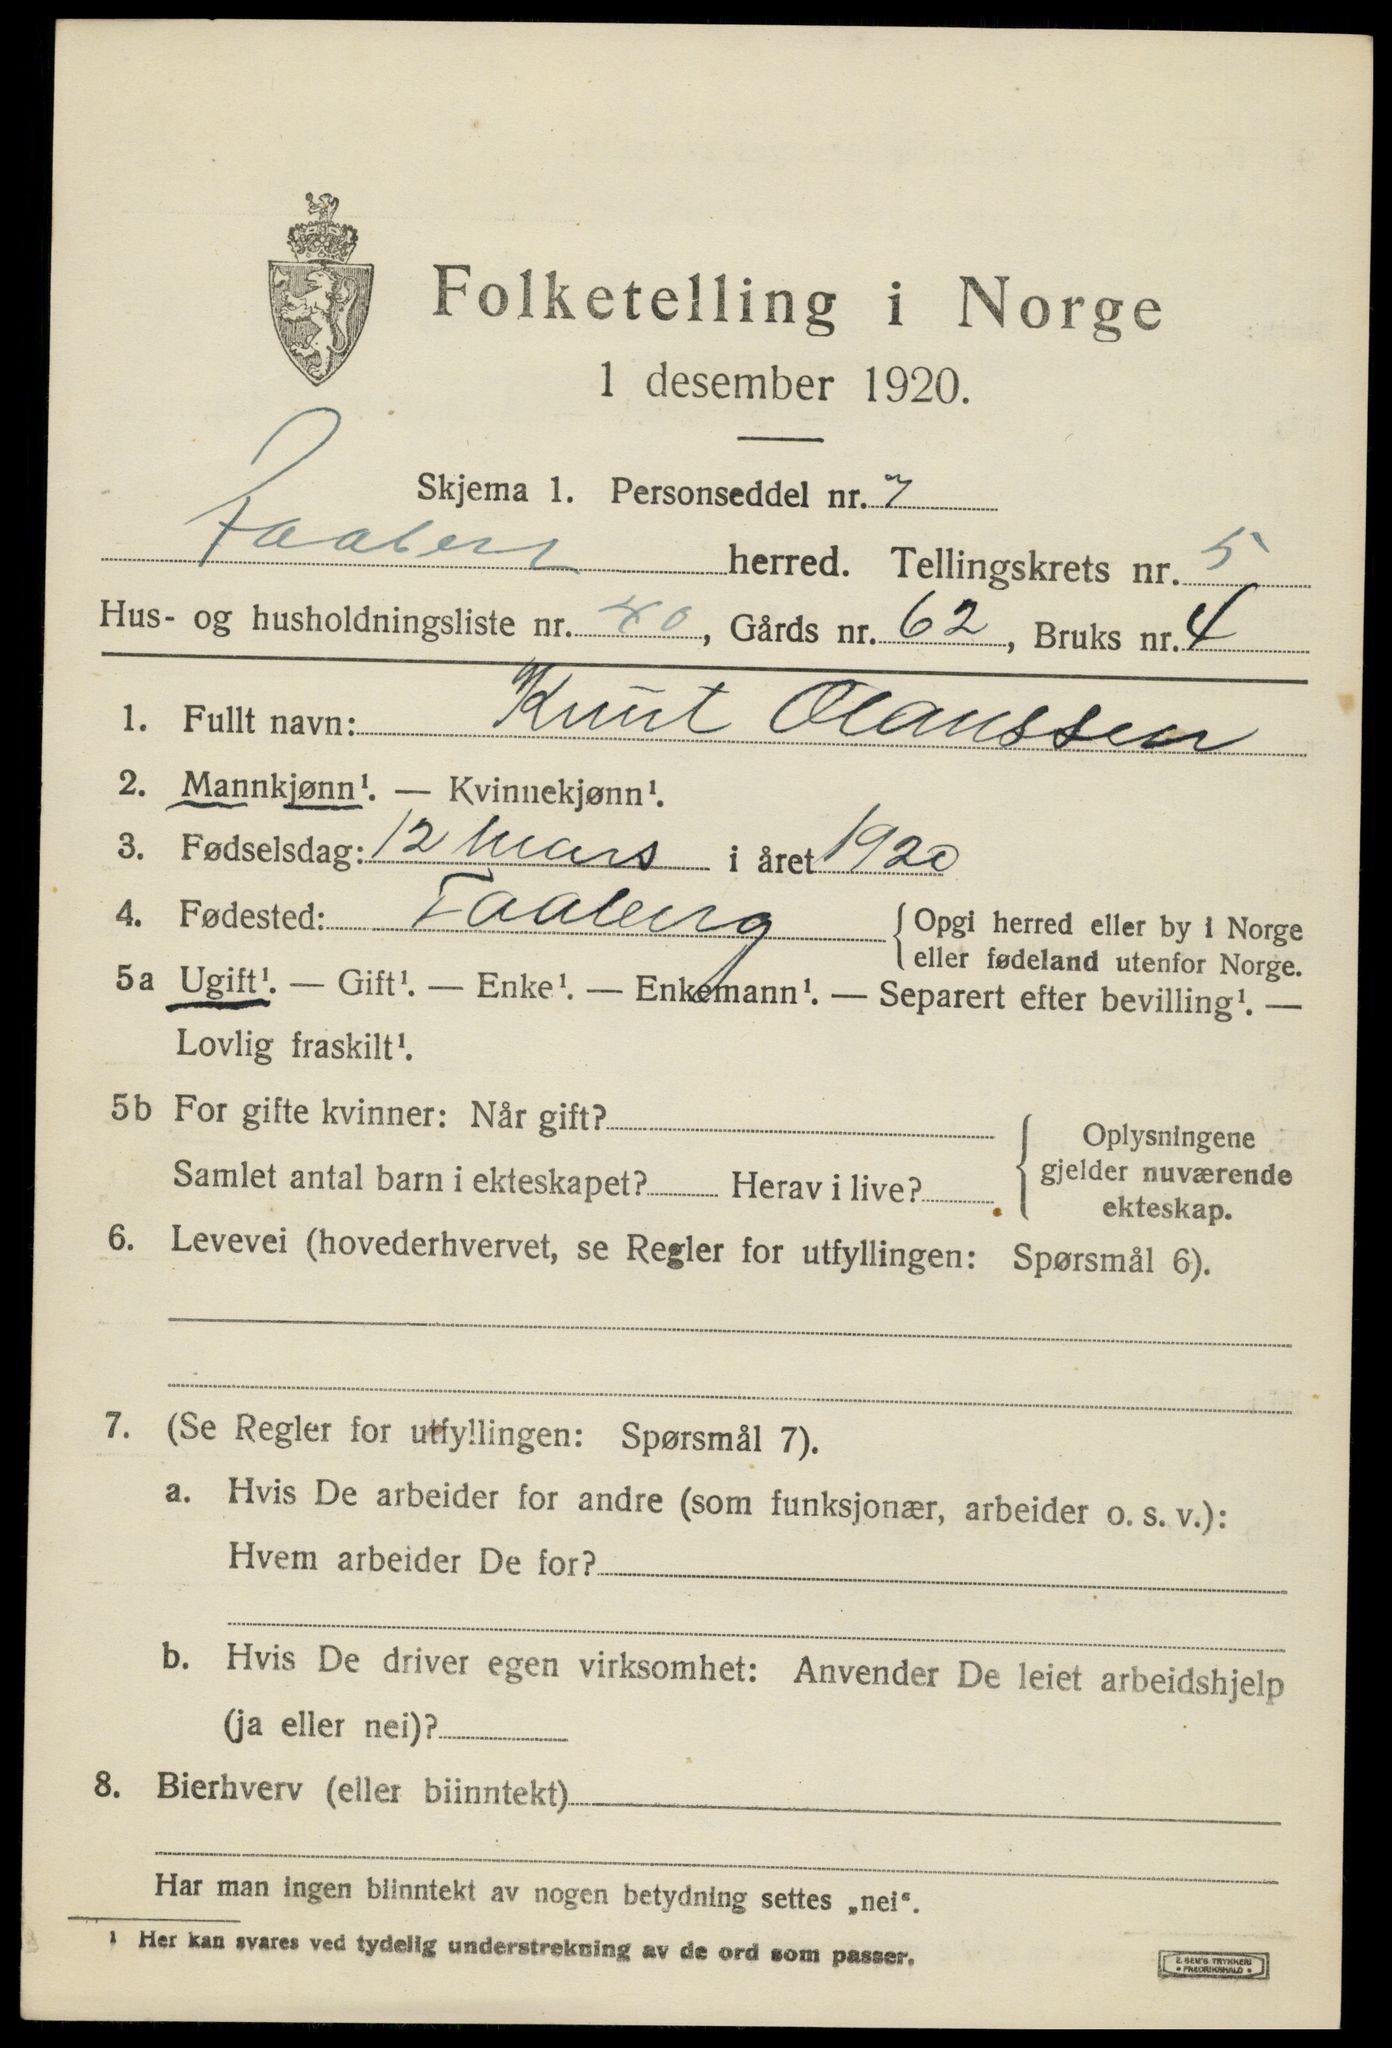 Folketelling i Norge
1 desember 1920.
Skjema 1. Personseddel nr. 7
Faaberg herred. Tellingskrets nr. 5
Hus- og husholdningsliste nr. 40, Gårds nr. 62, Bruks nr. 4
1. Fullt navn: Knut Olaussen
2. Mannkjønn¹. — Kvinnekjønn¹.
3. Fødselsdag: 12 mars i året 1920
4. Fødested: Faaberg { Opgi herred eller by i Norge
eller fødeland utenfor Norge.
5a Ugift¹. — Gift¹. — Enke¹. — Enkemann¹. — Separert efter bevilling¹. —
Lovlig fraskilt¹.
5b For gifte kvinner: Når gift?
Samlet antal barn i ekteskapet? Herav i live?
Oplysningene
gjelder nuværende
ekteskap.
6. Levevei (hovederhvervet, se Regler for utfyllingen: Spørsmål 6).
7. (Se Regler for utfyllingen: Spørsmål 7).
a. Hvis De arbeider for andre (som funksjonær, arbeider o. s. v.):
Hvem arbeider De for?
b. Hvis De driver egen virksomhet: Anvender De leiet arbeidshjelp
(ja eller nei)?
8. Bierhverv (eller biinntekt)
Har man ingen biinntekt av nogen betydning settes „nei“.
¹ Her kan svares ved tydelig understrekning av de ord som passer.
E. SEM'S TRYKKERI
• FREDRIKSHALD •